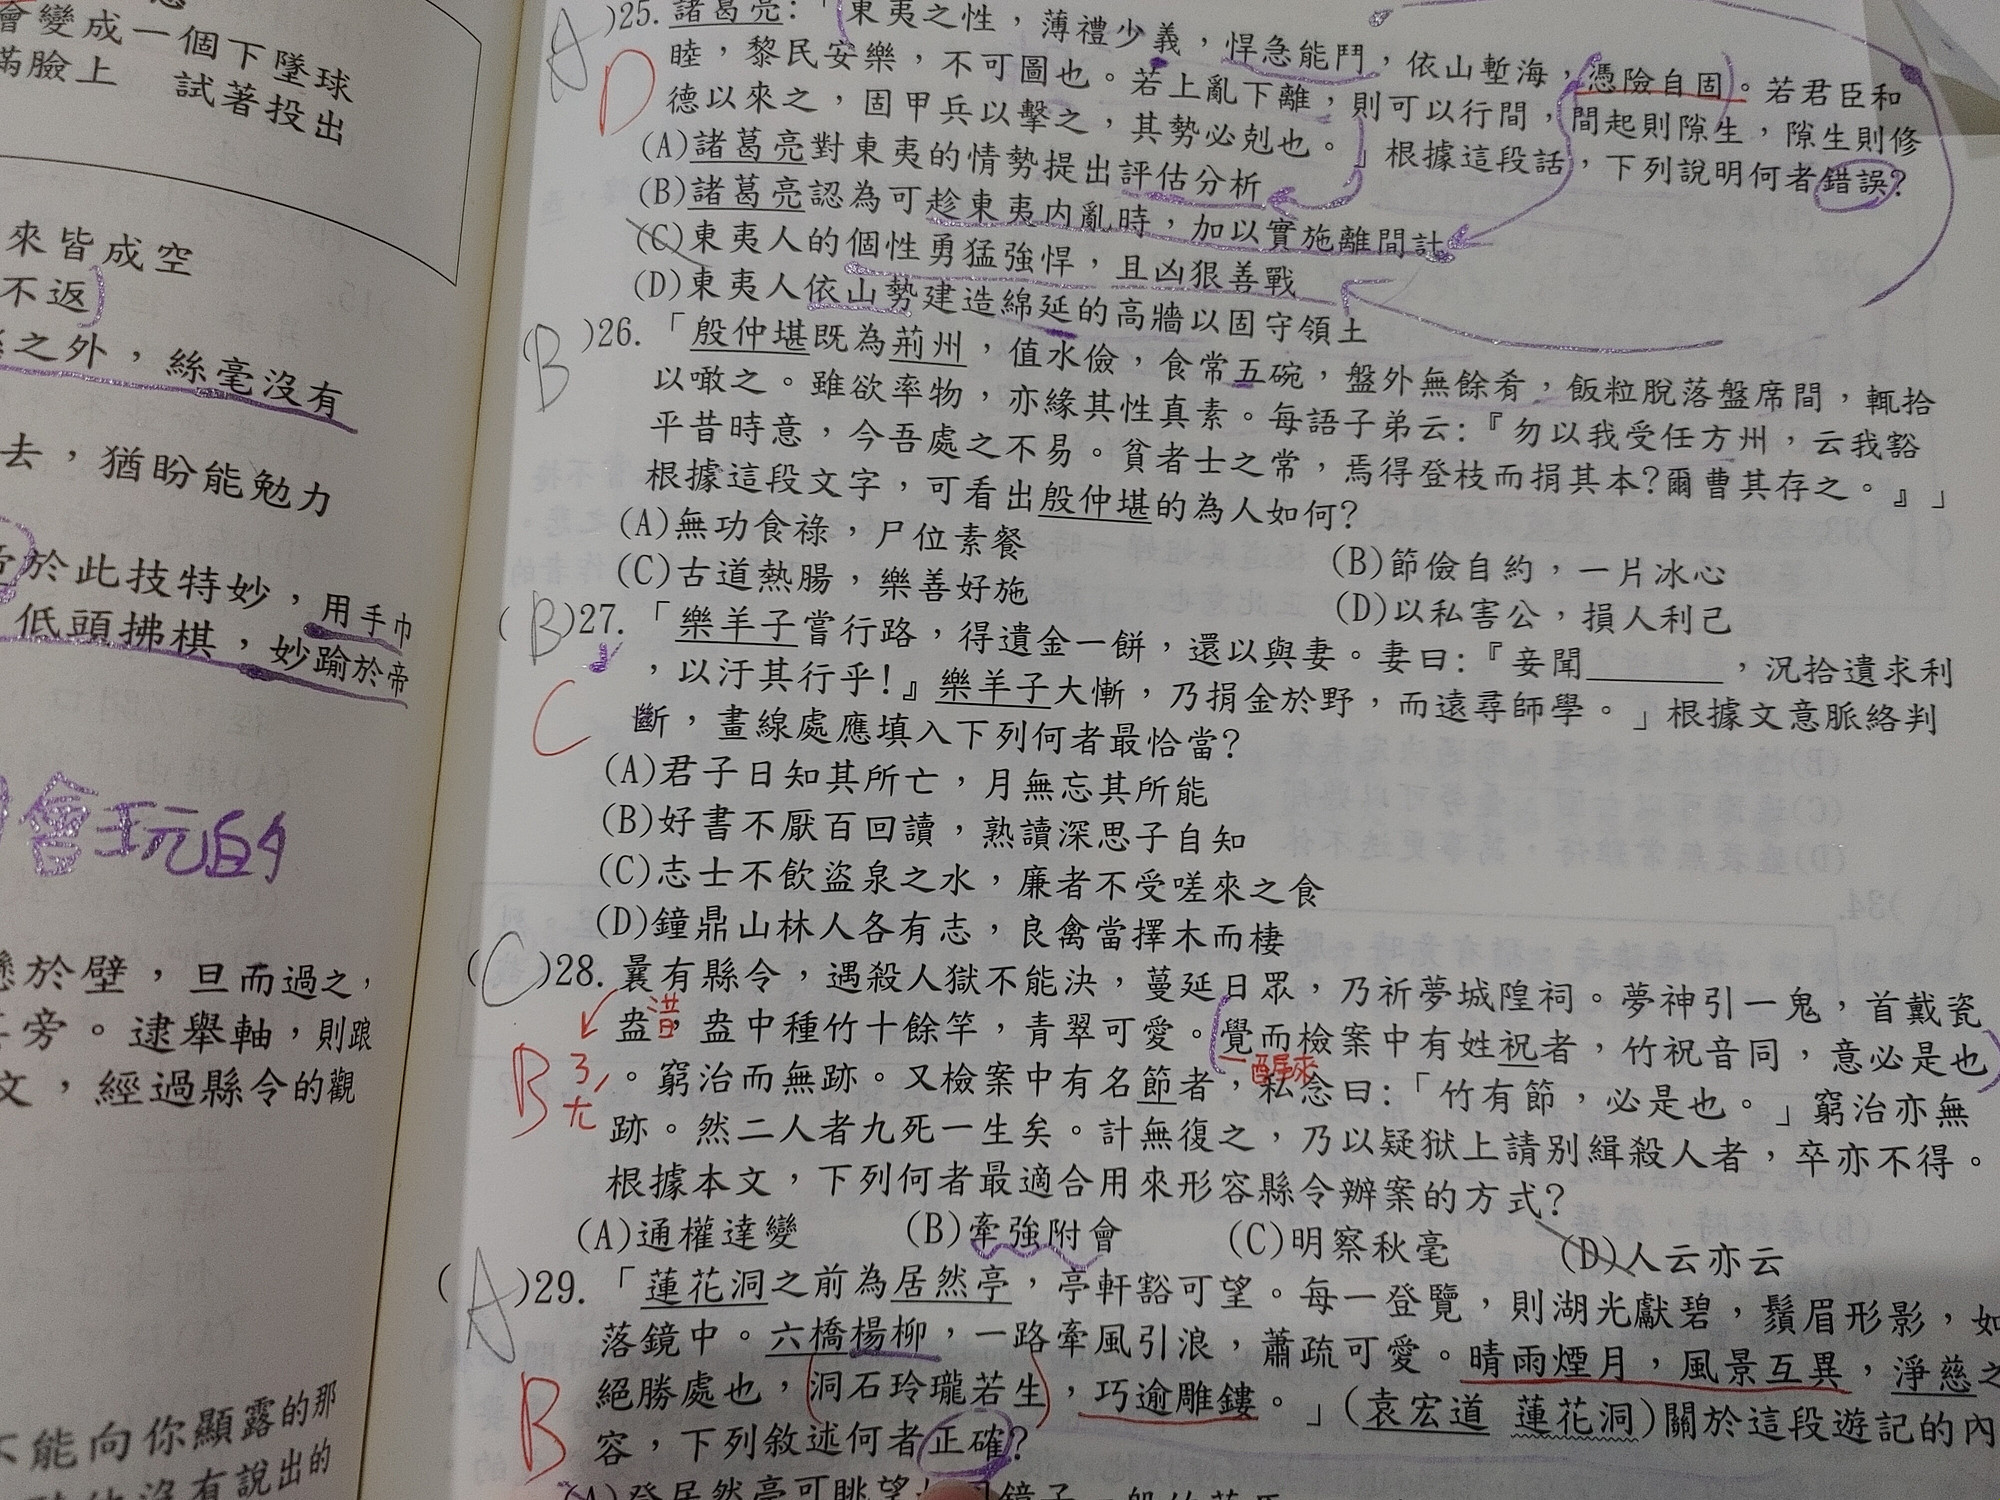 會變成一個下墜球
滿臉上 試著投出
來皆成空
不返
之外，絲毫沒有
去，猶盼能勉力
於此技特妙，用手巾
低頭拂棋，妙踰於帝
會玩的
於壁，旦而過之，
旁。逮舉軸，則踉
文，經過縣令的觀
不能向你顯露的那
沒有說出的
A )25. 諸葛亮：「東夷之性，薄禮少義，悍急能鬥，依山塹海，憑險自固。若君臣和
D 睦，黎民安樂，不可圖也。若上亂下離，則可以行間，間起則隙生，隙生則修
德以來之，固甲兵以擊之，其勢必剋也。」根據這段話，下列說明何者錯誤?
(A)諸葛亮對東夷的情勢提出評估分析
(B)諸葛亮認為可趁東夷內亂時，加以實施離間計
(C)東夷人的個性勇猛強悍，且凶狠善戰
(D)東夷人依山勢建造綿延的高牆以固守領土
B )26. 「殷仲堪既為荊州，值水儉，食常五碗，盤外無餘肴，飯粒脫落盤席間，輒拾
以噉之。雖欲率物，亦緣其性真素。每語子弟云：『勿以我受任方州，云我豁
平昔時意，今吾處之不易。貧者士之常，焉得登枝而捐其本?爾曹其存之。』」
根據這段文字，可看出殷仲堪的為人如何?
(A)無功食祿，尸位素餐 (B)節儉自約，一片冰心
(C)古道熱腸，樂善好施 (D)以私害公，損人利己
( B )27. 「樂羊子嘗行路，得遺金一餅，還以與妻。妻曰：『妾聞______，況拾遺求利
，以汙其行乎!』樂羊子大慚，乃捐金於野，而遠尋師學。」根據文意脈絡判
C 斷，畫線處應填入下列何者最恰當?
(A)君子日知其所亡，月無忘其所能
(B)好書不厭百回讀，熟讀深思子自知
(C)志士不飲盜泉之水，廉者不受嗟來之食
(D)鐘鼎山林人各有志，良禽當擇木而棲
( C )28. 曩有縣令，遇殺人獄不能決，蔓延日眾，乃祈夢城隍祠。夢神引一鬼，首戴瓷
盎，盎中種竹十餘竿，青翠可愛。覺而檢案中有姓祝者，竹祝音同，意必是也
B ㄋㄤˇ 昔 醒來
。窮治而無跡。又檢案中有名節者，私念曰：「竹有節，必是也。」窮治亦無
跡。然二人者九死一生矣。計無復之，乃以疑獄上請別緝殺人者，卒亦不得。
根據本文，下列何者最適合用來形容縣令辦案的方式?
(A)通權達變 (B)牽強附會 (C)明察秋毫 (D)人云亦云
( A )29. 「蓮花洞之前為居然亭，亭軒豁可望。每一登覽，則湖光獻碧，鬚眉形影，如
落鏡中。六橋楊柳，一路牽風引浪，蕭疏可愛。晴雨煙月，風景互異，淨慈之
B 絕勝處也，洞石玲瓏若生，巧逾雕鏤。」(袁宏道 蓮花洞)關於這段遊記的內
容，下列敘述何者正確?
(A)登居然亭可眺望